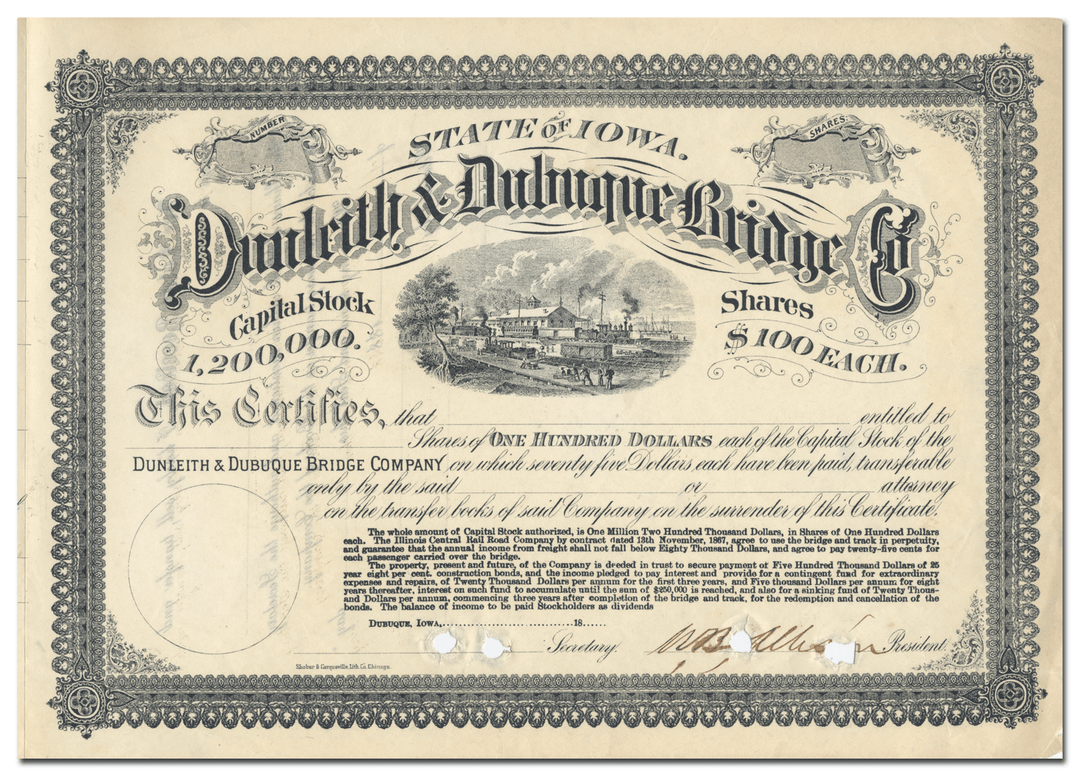 NUMBER
STATE OF IOWA.
SHARES
Dunleith & Dubuque Bridge Co
Capital Stock
1,200,000.
Shares
$100 EACH.
This Certifies, that entitled to
Shares of ONE HUNDRED DOLLARS each of the Capital Stock of the
DUNLEITH & DUBUQUE BRIDGE COMPANY on which seventy five Dollars each have been paid, transferable
only by the said or attorney
on the transfer books of said Company on the surrender of this Certificate.
The whole amount of Capital Stock authorized, is One Million Two Hundred Thousand Dollars, in Shares of One Hundred Dollars
each. The Illinois Central Rail Road Company by contract dated 13th November, 1867, agree to use the bridge and track in perpetuity,
and guarantee that the annual income from freight shall not fall below Eighty Thousand Dollars, and agree to pay twenty-five cents for
each passenger carried over the bridge.
The property, present and future, of the Company is deeded in trust to secure payment of Five Hundred Thousand Dollars of 25
year eight per cent. construction bonds, and the income pledged to pay interest and provide for a contingent fund for extraordinary
expenses and repairs, of Twenty Thousand Dollars per annum for the first three years, and Five thousand Dollars per annum for eight
years thereafter, interest on such fund to accumulate until the sum of $250,000 is reached, and also for a sinking fund of Twenty Thous-
and Dollars per annum, commencing three years after completion of the bridge and track, for the redemption and cancellation of the
bonds. The balance of income to be paid Stockholders as dividends
DUBUQUE, IOWA,.................................18......
Secretary. President.
Lith. Co. Chicago.